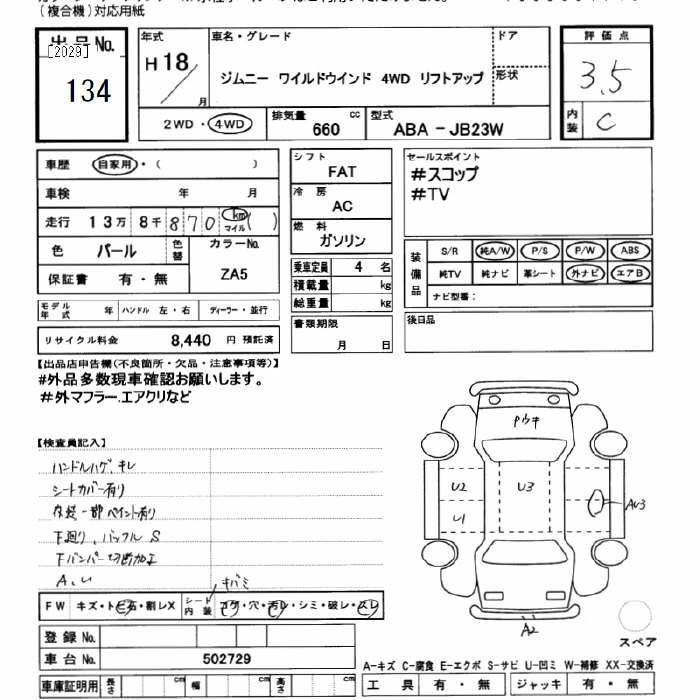 (複合機)対応用紙
出品No.
[2029]
134
年式
H18
月
車名・グレード
ジムニー ワイルドウインド 4WD リフトアップ
ドア
形状
評価点
3.5
内装
C
2WD・4WD
排気量
660
cc
型式
ABA - JB23W
車歴
自家用・( )
車検
年 月
走行
13万 8千 870
km
マイル
( )
色
パール
色替
カラーNo.
ZA5
保証書
有・無
シフト
FAT
冷房
AC
燃料
ガソリン
乗車定員 4 名
積載量 kg
総重量 kg
書類期限
月 日
セールスポイント
#スコップ
#TV
装備品
S/R 純A/W P/S P/W ABS
純TV 純ナビ 革シート 外ナビ エアB
ナビ型番:
後日品
モデル年式 年
ハンドル 左・右
ディーラー・並行
リサイクル料金 8,440 円 預託済
【出品店申告欄(不良箇所・欠品・注意事項等)】
#外品多数現車確認お願いします。
#外マフラー.エアクリなど
【検査員記入】
ハンドルハゲ、キレ
シートカバー有り
内装一部ペイント有り
下廻り、バックル S
Fバンパー切断加工
A、U
キバミ
FW キズ・トビ石・割レX
シート内装 コゲ・穴・汚レ・シミ・破レ・スレ
登録No.
車台No. 502729
車庫証明用
長さ cm 幅 cm 高さ cm
Pウキ
U2
U3
U1
AU3
A2
スペア
A-キズ C-腐食 E-エクボ S-サビ U-凹ミ W-補修 XX-交換済
工具 有・無 ジャッキ 有・無